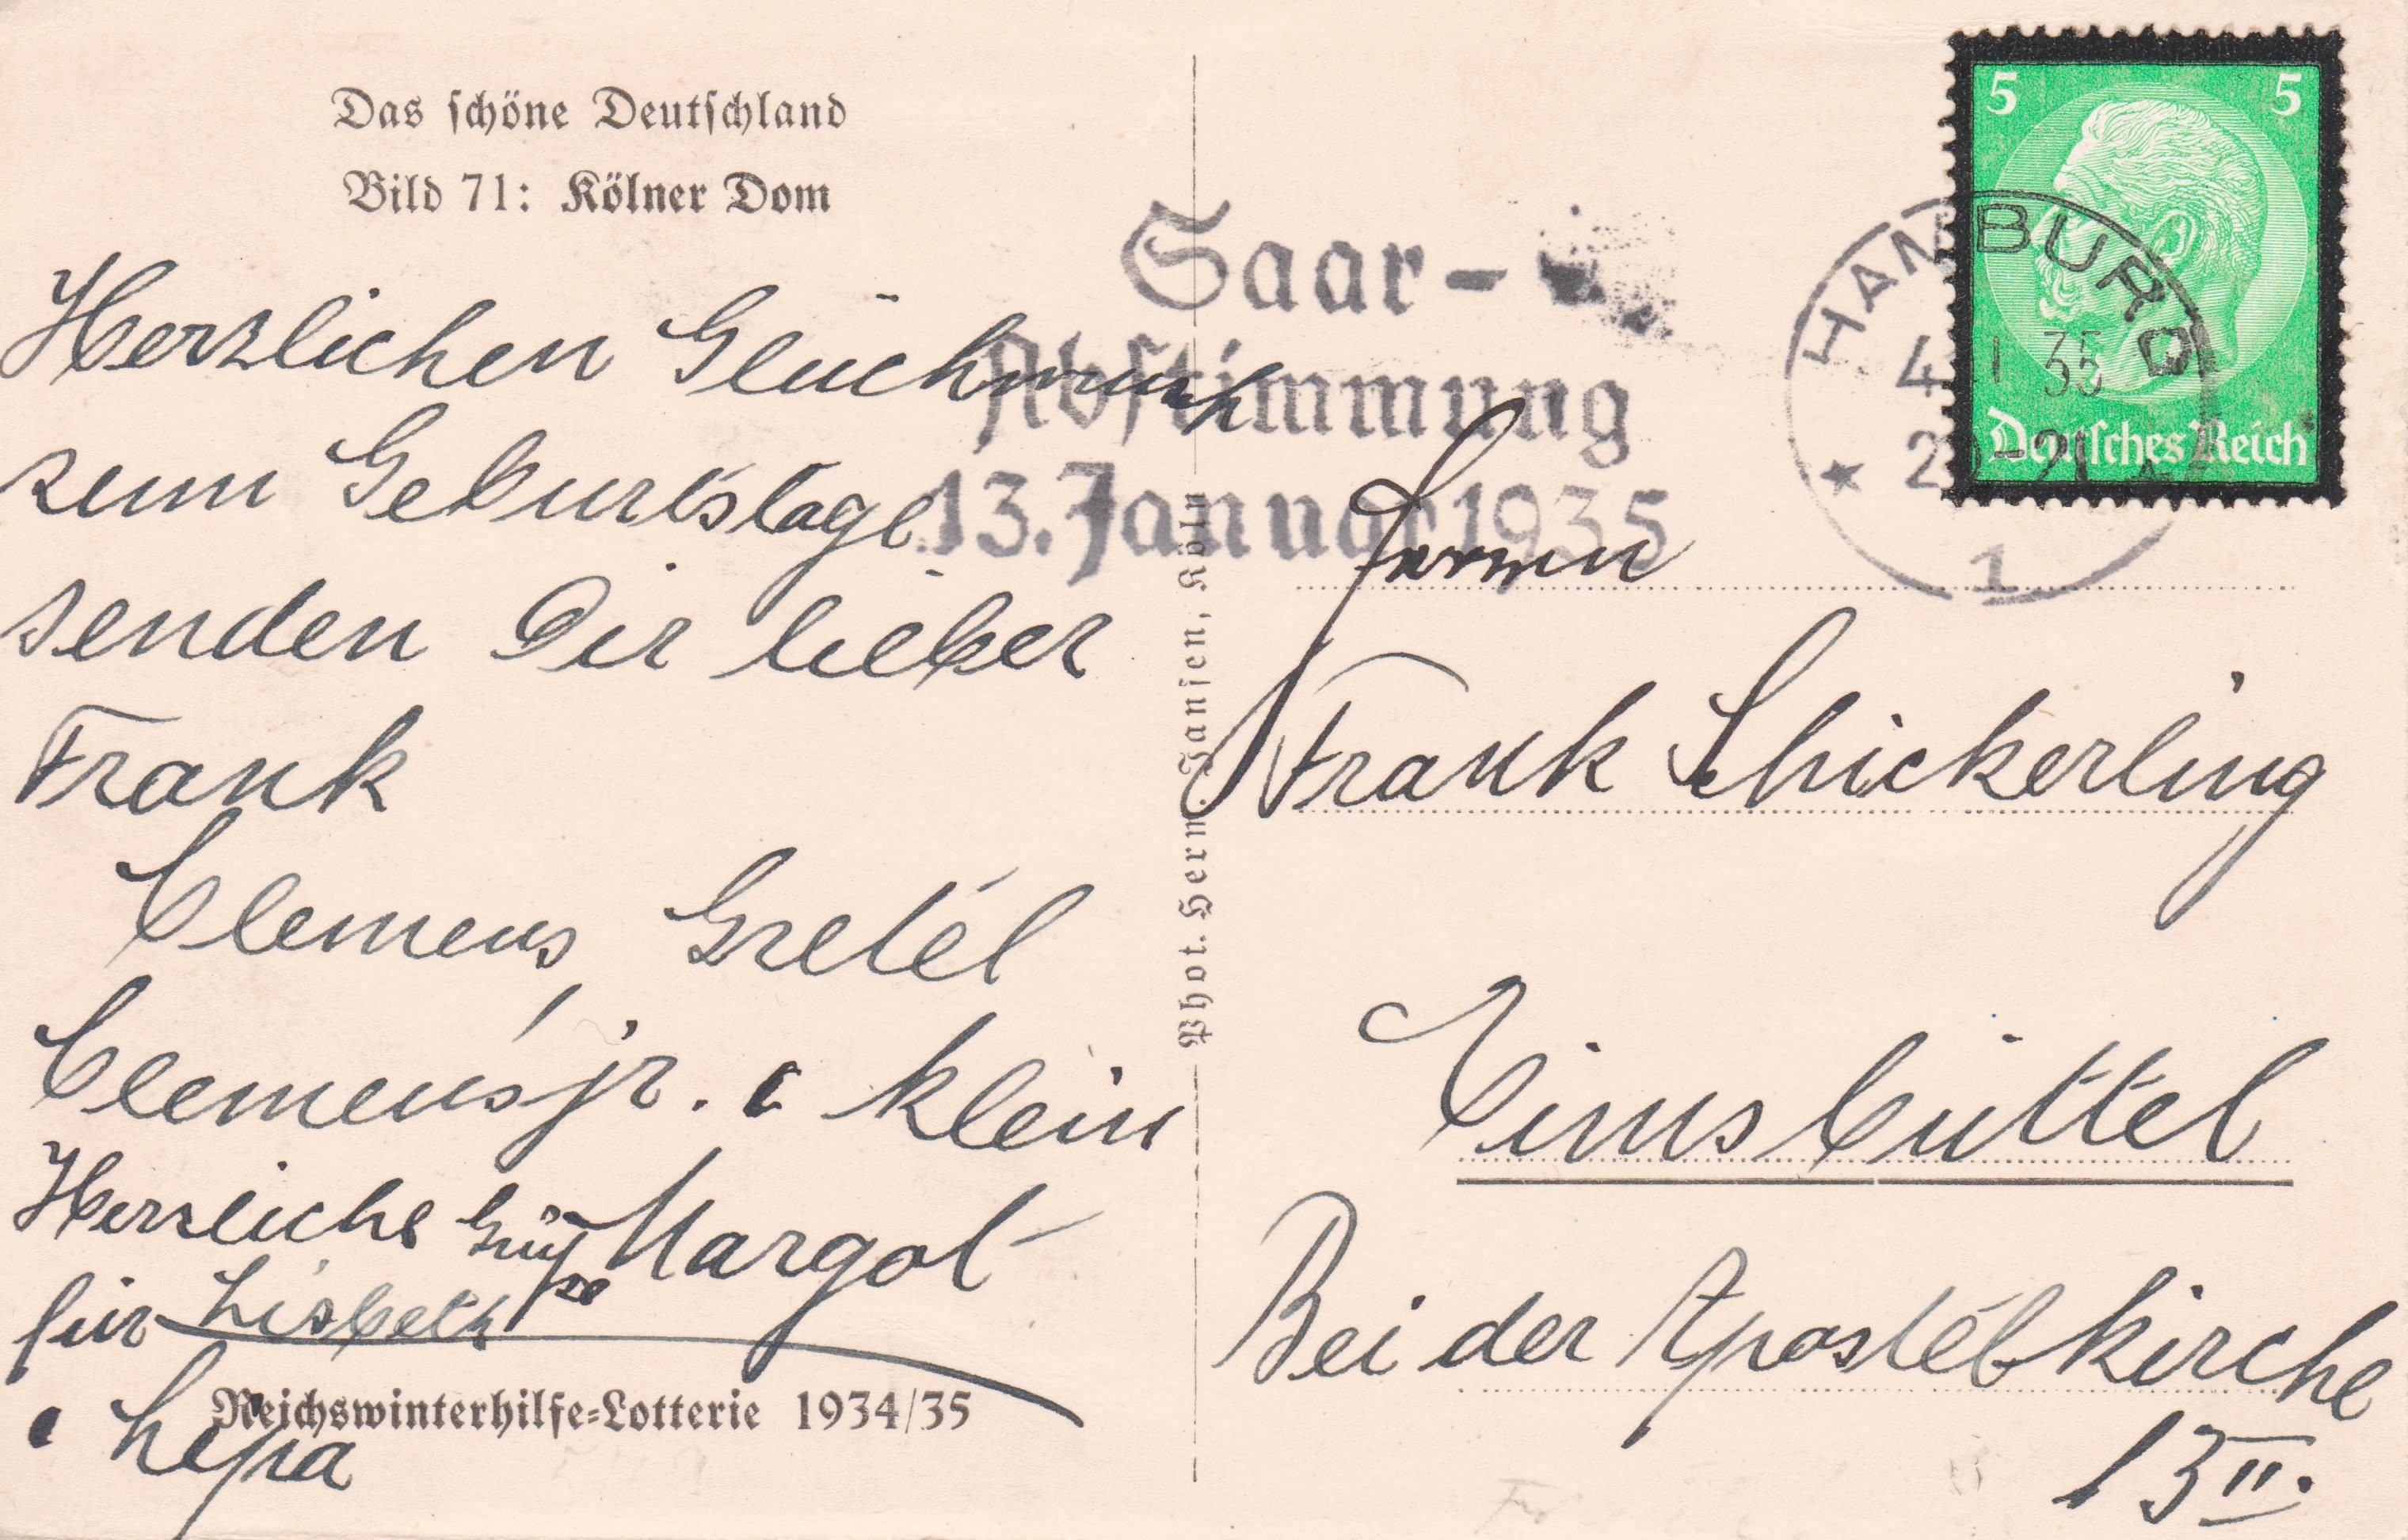 Das schöne Deutschland
Bild 71: Kölner Dom
Herzlichen Glückwunsch
zum Geburtstage
senden Dir lieber
Frank
Clemens Gretel
Clemens jr. klein
Margot
Herzliche Grüße
für Lisbeth
Reichswinterhilfe-Lotterie 1934/35
Phot. Herm. Jansen, Köln
Saar-
Abstimmung
13. Januar 1935
HAMBURG
35
1
5 5
Deutsches Reich
Herrn
Frank Schickerling
Eimsbüttel
Bei der Apostelkirche
13 II.